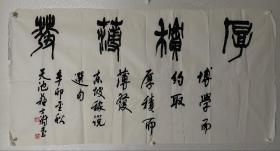 厚積薄發
博學而
約取
厚積而
薄發
東坡稼說
選句
辛卯金秋
天池